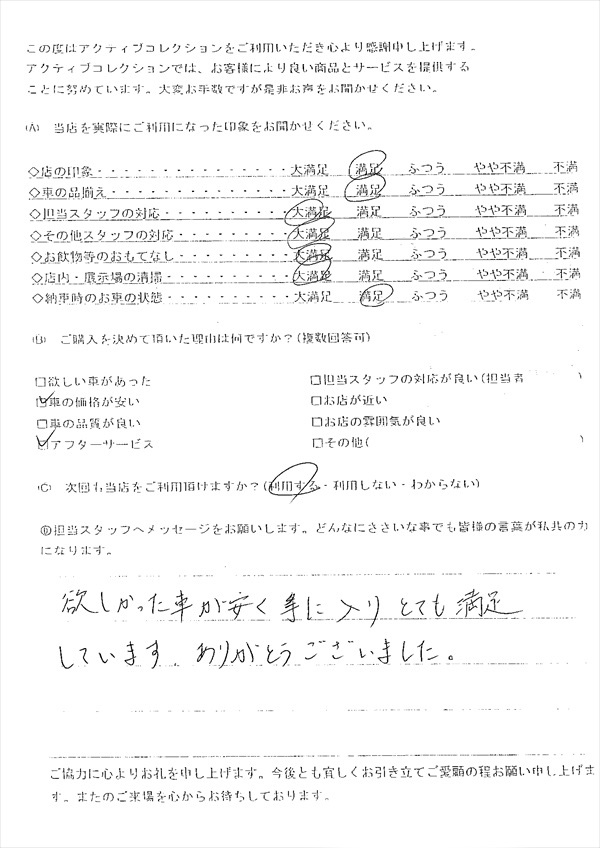 この度はアクティブコレクションをご利用いただき心より感謝申し上げます。
アクティブコレクションでは、お客様により良い商品とサービスを提供する
ことに努めています。大変お手数ですが是非お声をお聞かせください。
(A) 当店を実際にご利用になった印象をお聞かせください。
◇店の印象・・・・・・・・・・・・・・・大満足 満足 ふつう やや不満 不満
◇車の品揃え・・・・・・・・・・・・・・大満足 満足 ふつう やや不満 不満
◇担当スタッフの対応・・・・・・・・・・大満足 満足 ふつう やや不満 不満
◇その他スタッフの対応・・・・・・・・・大満足 満足 ふつう やや不満 不満
◇お飲物等のおもてなし・・・・・・・・・大満足 満足 ふつう やや不満 不満
◇店内・展示場の清掃・・・・・・・・・・大満足 満足 ふつう やや不満 不満
◇納車時のお車の状態・・・・・・・・・・大満足 満足 ふつう やや不満 不満
(B) ご購入を決めて頂いた理由は何ですか?(複数回答可)
□欲しい車があった □担当スタッフの対応が良い(担当者 )
☑車の価格が安い □お店が近い
□車の品質が良い □お店の雰囲気が良い
☑アフターサービス □その他( )
(C) 次回も当店をご利用頂けますか?(利用する・利用しない・わからない)
Ⓓ担当スタッフへメッセージをお願いします。どんなにささいな事でも皆様の言葉が私共の力
になります。
欲しかった車が安く手に入りとても満足
しています。ありがとうございました。
ご協力に心よりお礼を申し上げます。今後とも宜しくお引き立てご愛顧の程お願い申し上げま
す。またのご来場を心からお待ちしております。